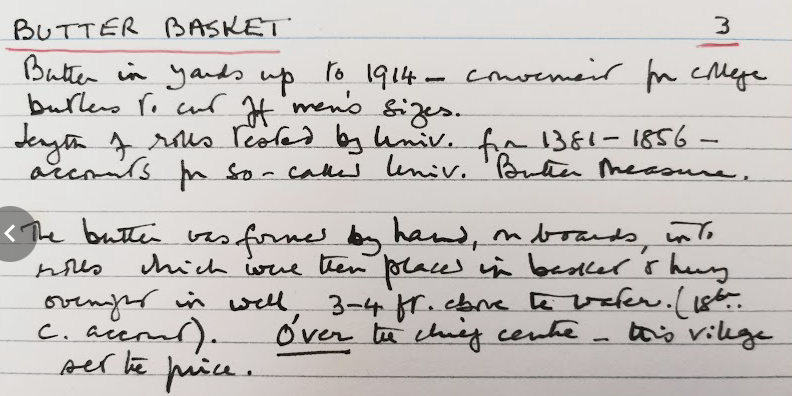 BUTTER BASKET 3
Butter in yards up to 1914 – convenient for college
butlers to cut off men's sizes.
Length of rolls tested by Univ. from 1381–1856 –
accounts for so-called Univ. Butter Measure.
The butter was formed by hand, on boards, into
rolls which were then placed in basket & hung
overnight in well, 3–4 ft. above the water. (18th.
C. account). Over the chief centre – this village
set the price.